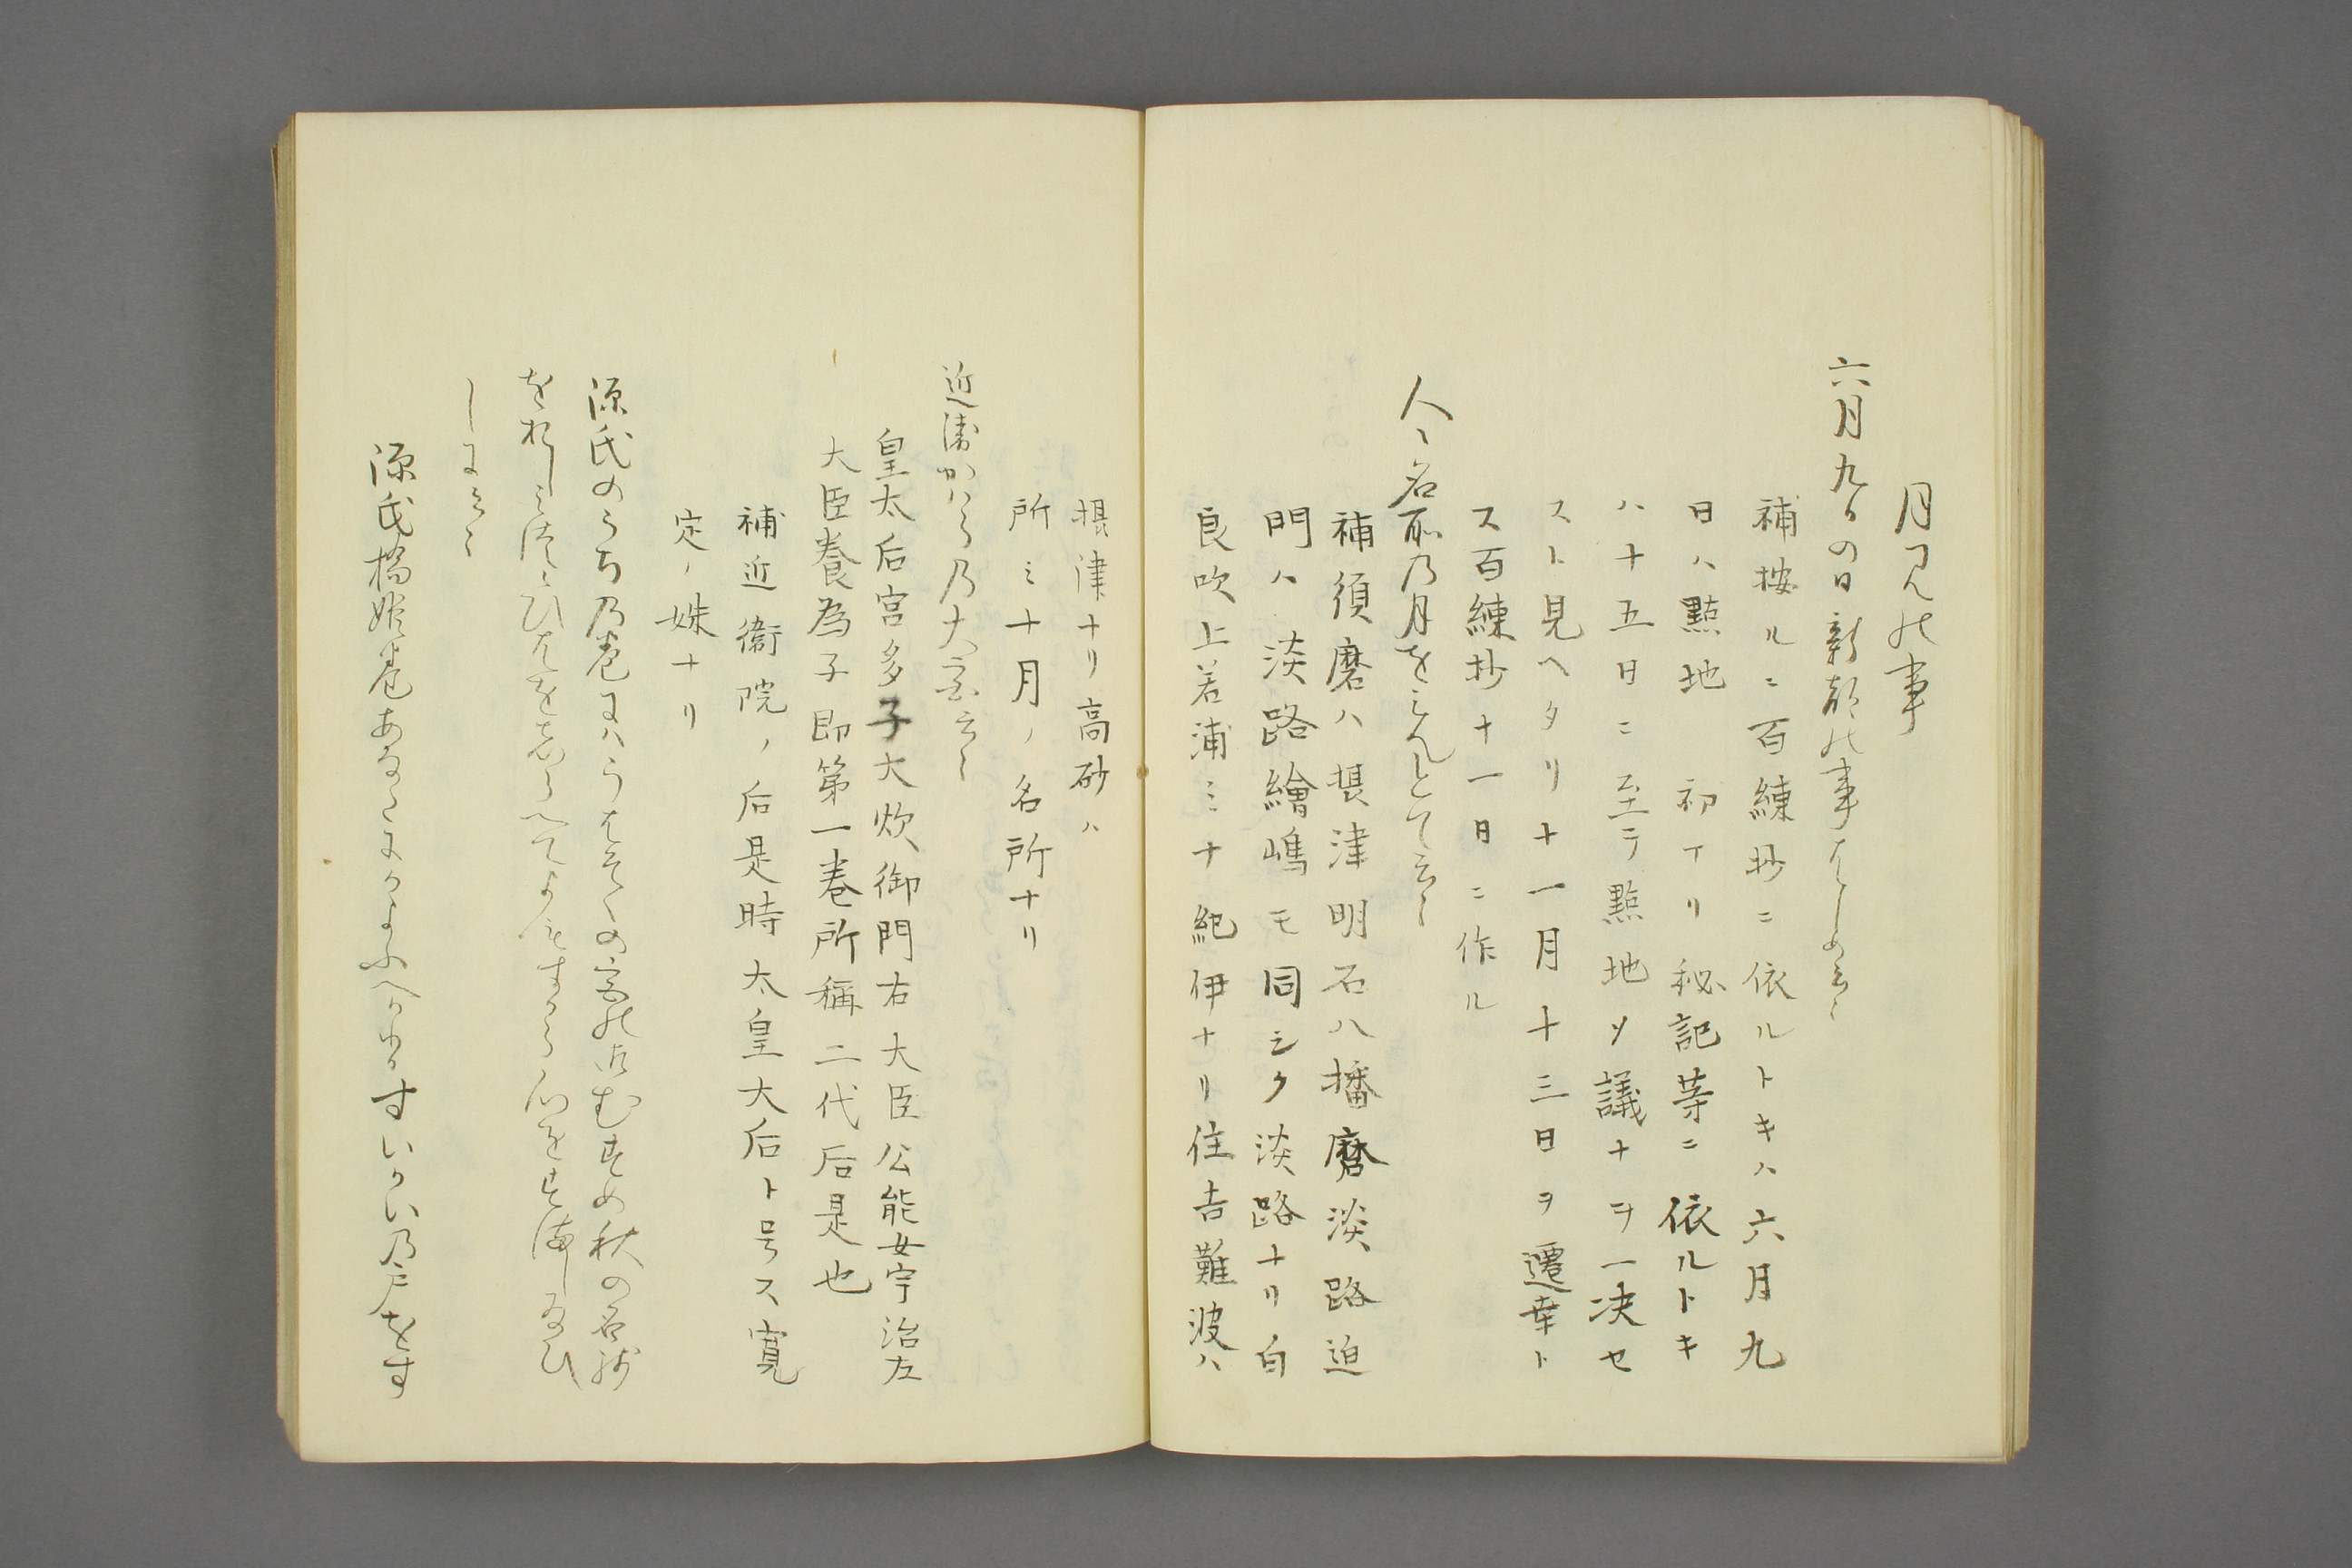 月見の事
六月九日の日新都の事はしめ云々
補按ルニ百練抄ニ依ルトキハ六月九
日ハ點地 初アリ秘記等ニ依ルトキ
ハ十五日ニ至テ點地ノ議ナヲ一决セ
スト見ヘタリ十一月十三日ヲ遷幸ト
ス百練抄十一日ニ作ル
人々名所乃月をみんとて云々
補須磨ハ摂津明石ハ播磨淡路迫
門ハ淡路繪嶋モ同シク淡路ナリ白
良吹上若浦ミナ紀伊ナリ住吉難波ハ
摂津ナリ高砂ハ
所ミナ月ノ名所ナリ
近衛かはら乃大宮云々
皇太后宮多子大炊御門右大臣公能女宇治左
大臣養為子即第一巻所稱二代后是也
補近衞院ノ后是時太皇大后ト号ス寛
定ノ姝ナリ
源氏のうち乃巻にはうはそくの宮の御むすめ秋の名残
をおしみ琵琶をしらへてよもすから心をすまし給ひ
しに云々
源氏橋姫巻あなたにかよふへかめるすいかい乃戸をす